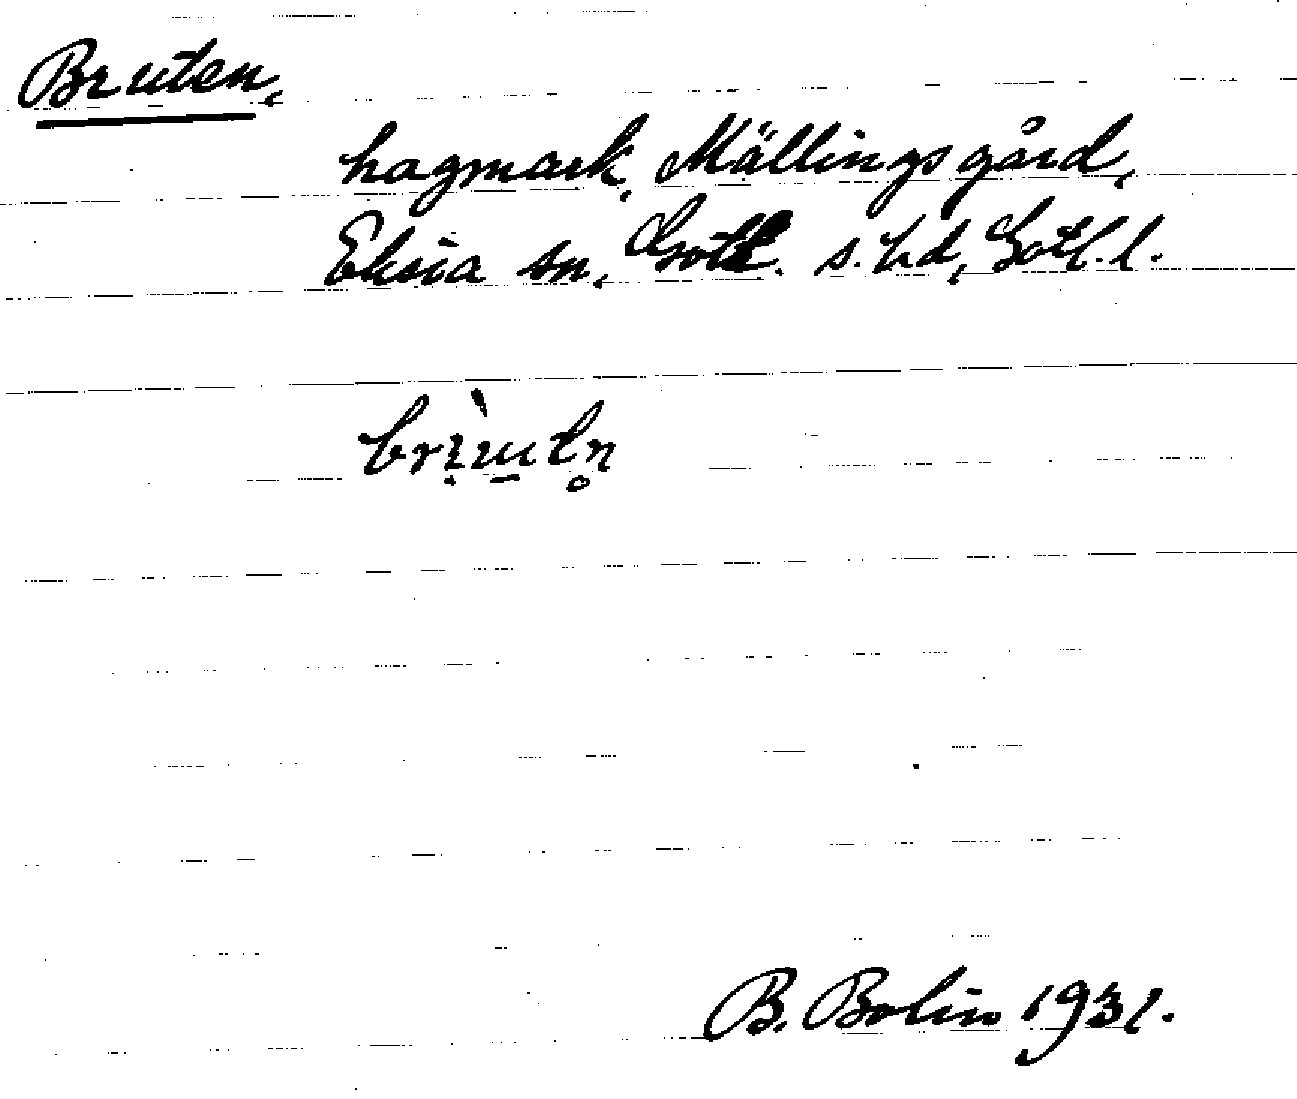 Bruten,
hagmark, Mällings gård,
Eksta sn, Gotl. s. hd, Gotl. l.
B. Bolin 1931.